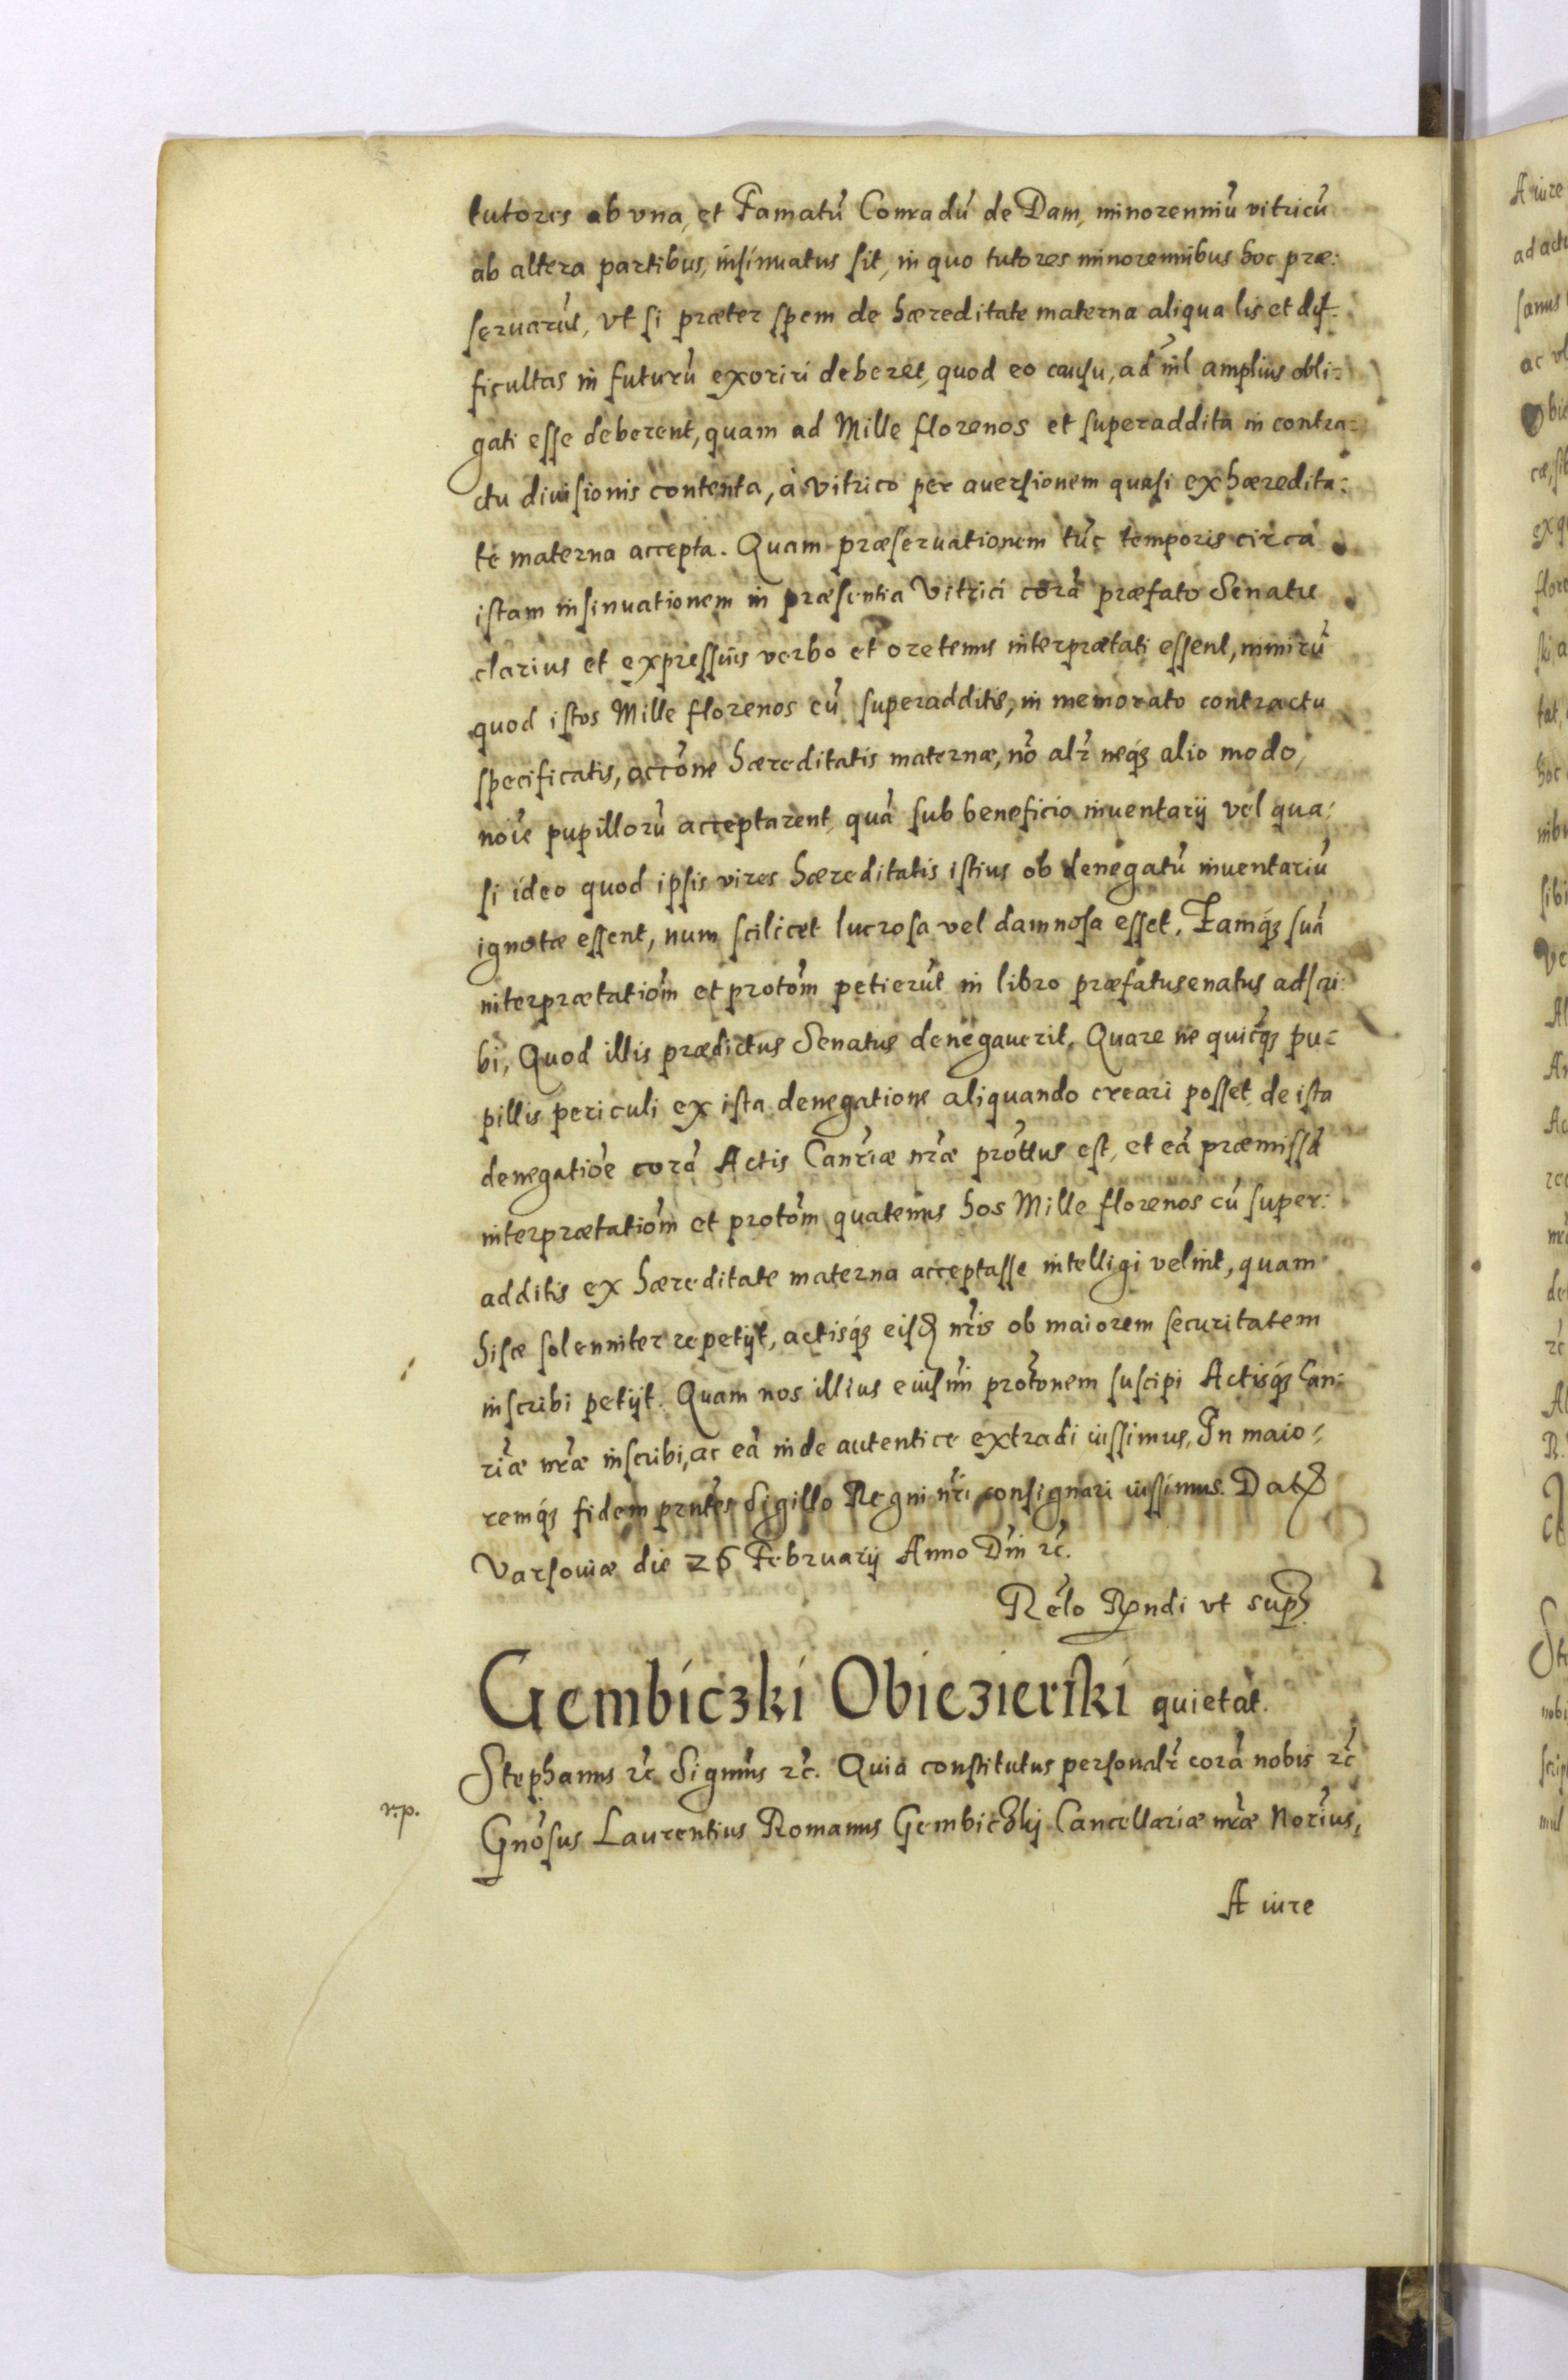 tutores ab vna, et Famatū Conradū de Dam, minorenniū vitricū
ab altera partibus, insinuatus sit, in quo tutores minorennibus hoc præ:
seruarūt, vt si præter spem de hæreditate materna aliqua lis et dif:
ficultas in futurū exoriri deberet, quod eo causu, ad nīl amplius obli:
gati esse deberent, quam ad Mille florenos et superaddita in contra:
ctu diuisionis contenta, à vitrico per auersionem quasi ex hæredita:
te materna accepta. Quam præseruationem tūc temporis circa
istam insinuationem in præsentia Vitrici corā præfato Senatu
clarius et expressius verbo et oretenus interprætati essent, nimirū
quod istos Mille florenos cū superadditis, in memorato contractu
specificatis, accōne hæreditatis maternæ, nō alr̄ neqꝫ alio modo,
noīe pupillorū acceptarent, quā sub beneficio inuentarij vel qua:
si ideo quod ipsis vires hæreditatis istius ob denegatū inuentariū
ignotæ essent, num scilicet lucrosa vel damnosa esset. Eamqꝫ suā
interprætatiōm et protōm petierūt in libro præfatusenatus adscri:
bi, Quod illis prædictus Senatus denegauerit. Quare ne quicqꝫ pu:
pillis periculi ex ista denegatione aliquando creari posset, de ista
denegatiōe corā Actis Canr̄iæ nr̄æ prōttus est, et eā præmissā
interprætatiōm et protōm quatenus hos Mille florenos cū super:
additis ex hæreditate materna acceptasse intelligi velint, quam
hisce solenniter repetijt, actisqꝫ eisꝺ nr̄is ob maiorem securitatem
inscribi petijt. Quam nos illius eiusm̄i protōnem suscipi Actisqꝫ Can:
r̄iæ nr̄æ inscribi, ac eā inde autentice extradi iussimus. In maio:
remqꝫ fidem prn̄tes Sigillo Regni nr̄i consignari iussimus. Datꝭ
Varsouiæ die 26 Februarij Anno Dn̄i ꝛc̄.
Rēlo Rꝑndi vt supꝭ
Gembiczki Obiezierski quietat.
Stephanus ꝛc̄ Signm̄s ꝛc̄. Quia constitutus personalr̄ corā nobis ꝛc̄
r.p.
Gnōsus Laurentius Romanus Gembiczkij Cancellariæ nr̄æ Nor̄ius,
A iure